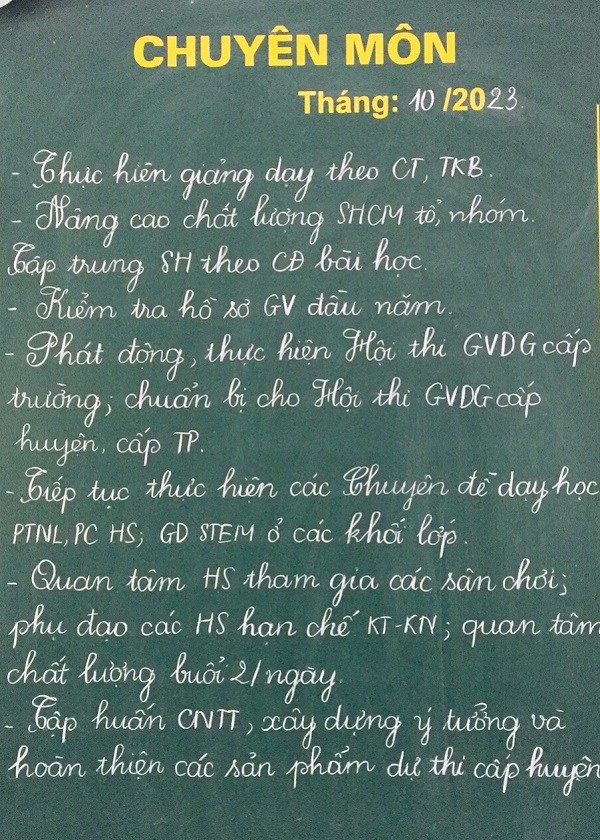 CHUYÊN MÔN
Tháng: 10 /2023.
- Thực hiện giảng dạy theo CT, TKB.
- Nâng cao chất lượng SHCM tổ, nhóm.
Tập trung SH theo CĐ bài học.
- Kiểm tra hồ sơ GV đầu năm.
- Phát động, thực hiện Hội thi GVDG cấp
trường; chuẩn bị cho Hội thi GVDG cấp
huyện, cấp TP.
- Tiếp tục thực hiện các Chuyên đề dạy học
PTNL, PC HS; GD STEM ở các khối lớp.
- Quan tâm HS tham gia các sân chơi;
phụ đạo các HS hạn chế KT-KN; quan tâm
chất lượng buổi 2/ngày.
- Tập huấn CNTT, xây dựng ý tưởng và
hoàn thiện các sản phẩm dự thi cấp huyện